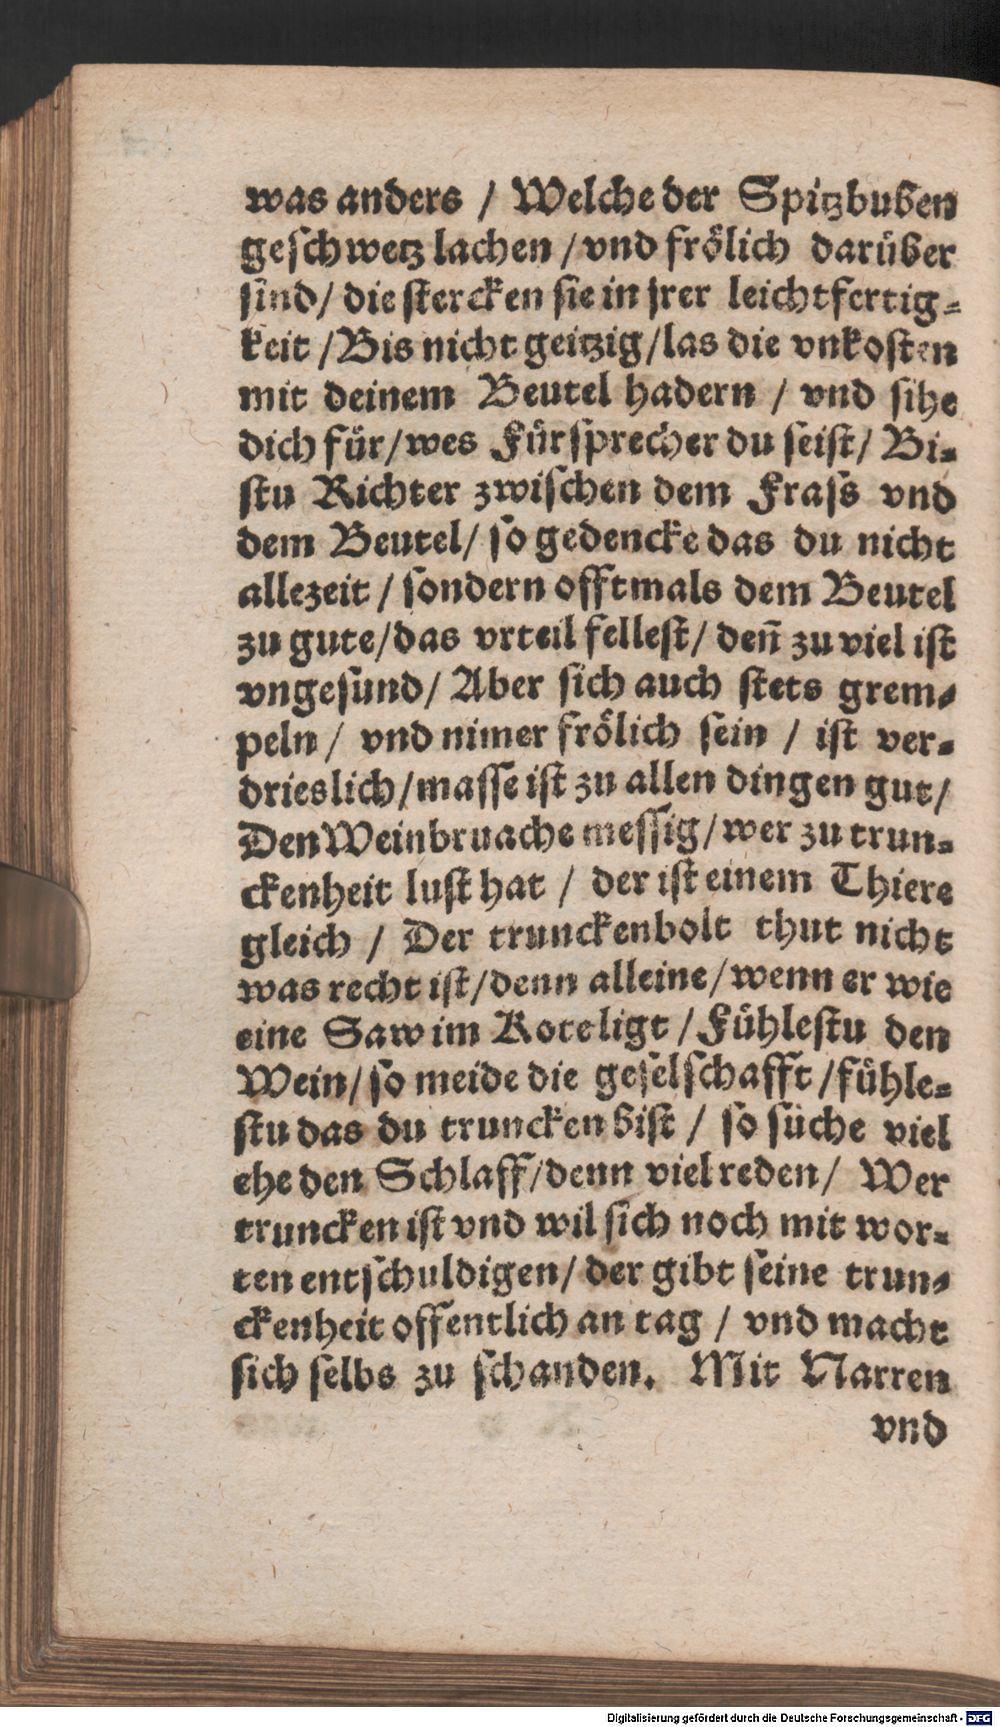 was anders / Welche der Spitzbuben
geschwetz lachen / vnd frölich darüber
sind / die stercken sie in jrer leichtfertig-
keit / Bis nicht geitzig / las die vnkosten
mit deinem Beutel hadern / vnd sihe
dich für / wes Fürsprecher du seist / Bi-
stu Richter zwischen dem Frass vnd
dem Beutel / so gedencke das du nicht
allezeit / sondern offtmals dem Beutel
zu gute / das vrteil fellest / deñ zu viel ist
vngesund / Aber sich auch stets grem-
peln / vnd nimer frölich sein / ist ver-
drieslich / masse ist zu allen dingen gut /
Den Wein bruache messig / wer zu trun-
ckenheit lust hat / der ist einem Thiere
gleich / Der trunckenbolt thut nicht
was recht ist / denn alleine / wenn er wie
eine Saw im Kote ligt / Fühlestu den
Wein / so meide die geselschafft / fühle-
stu das du truncken bist / so süche viel
ehe den Schlaff / denn viel reden / Wer
truncken ist vnd wil sich noch mit wor-
ten entschuldigen / der gibt seine trun-
ckenheit offentlich an tag / vnd macht
sich selbs zu schanden. Mit Narren
vnd
Digitalisierung gefördert durch die Deutsche Forschungsgemeinschaft - DFG